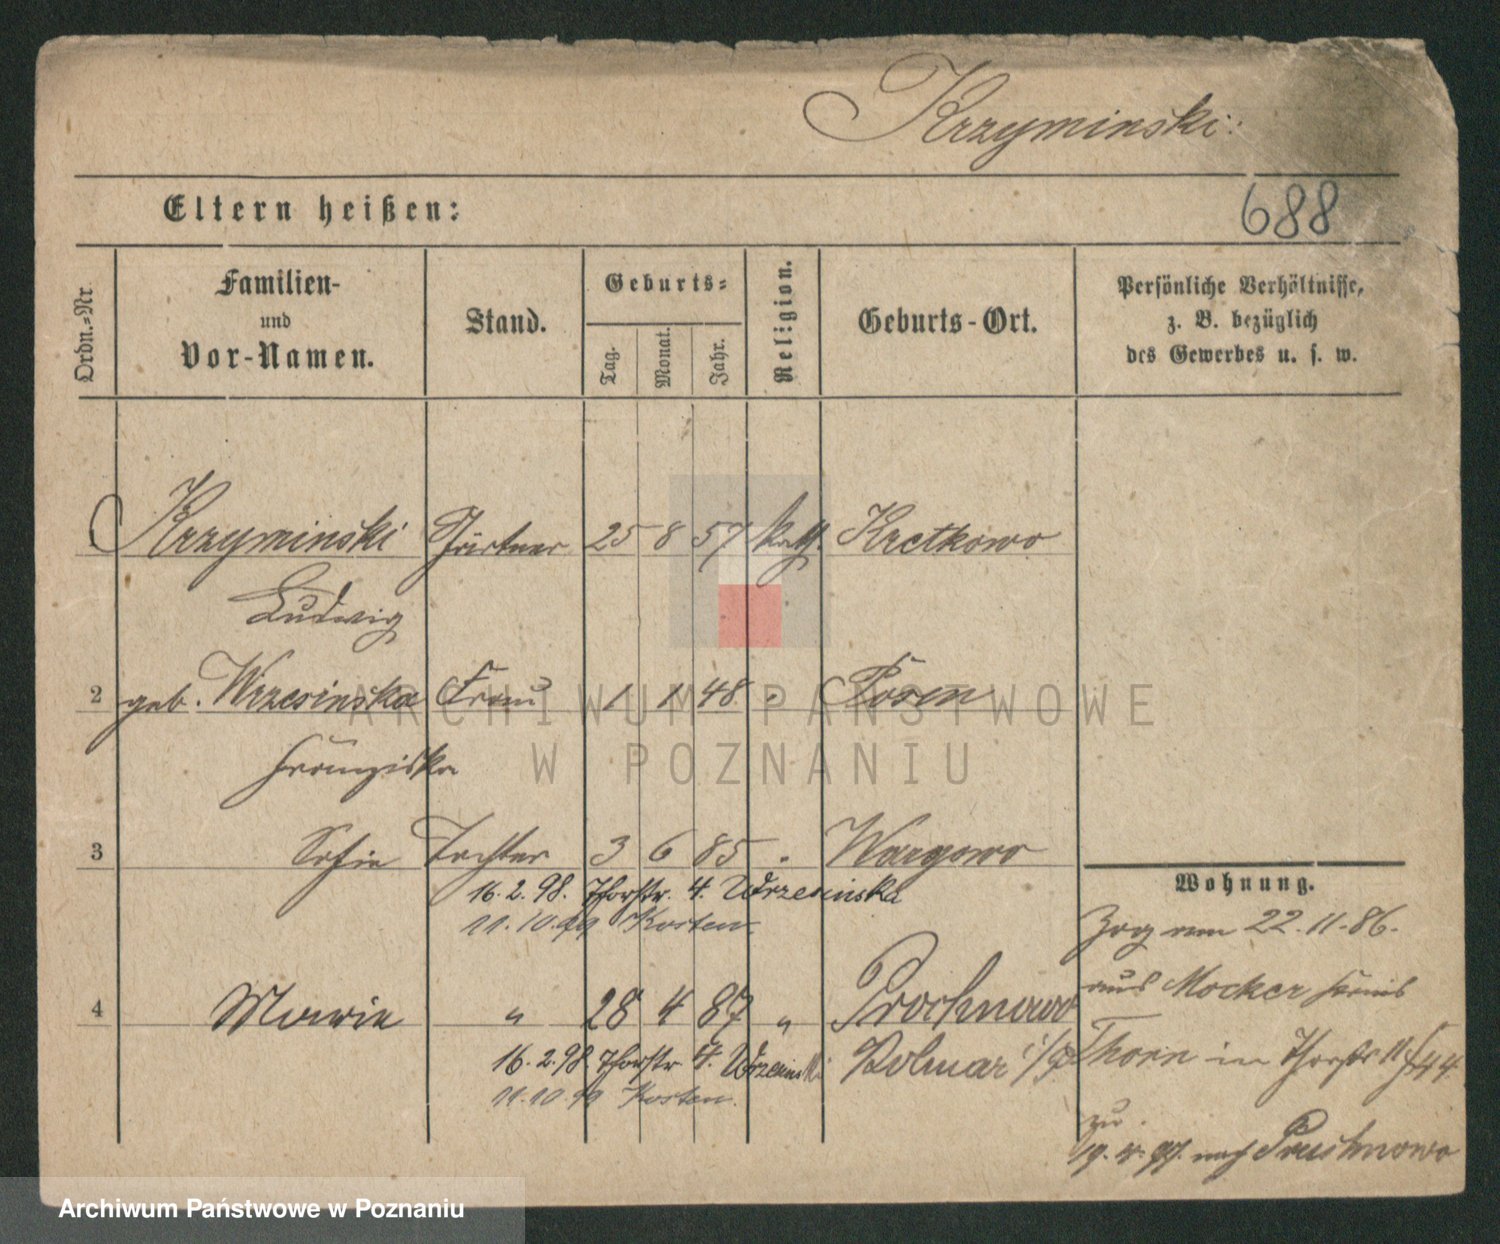 Krzyminski.
Eltern heißen:
688
Ordn.-Nr
Familien-
und
Vor-Namen.
Stand.
Geburts-
Tag.
Monat.
Jahr.
Religion.
Geburts-Ort.
Persönliche Verhältnisse,
z. B. bezüglich
des Gewerbes u. s. w.
1 Krzyminski Gärtner 25 8 57 kath. Kretkowo
Ludwig
2 geb. Wrzesinska Frau 1 1 48 " Posen
Franziska
3 Sofie Tochter 3 6 85 " Wargowo
16.2.98. Thorstr. 4. Wrzesinska
11.10.99 Kosten
4 Marie " 28 4 87 " Prochnowo
Kolmar i/P
16.2.98 Thorstr 4. Wrzesinski
11.10.99 Kosten.
Wohnung.
Zog am 22.11.86.
aus Mocker
Thorn in Thorstr 11
zu.
nach
ARCHIWUM PAŃSTWOWE
W POZNANIU
Archiwum Państwowe w Poznaniu